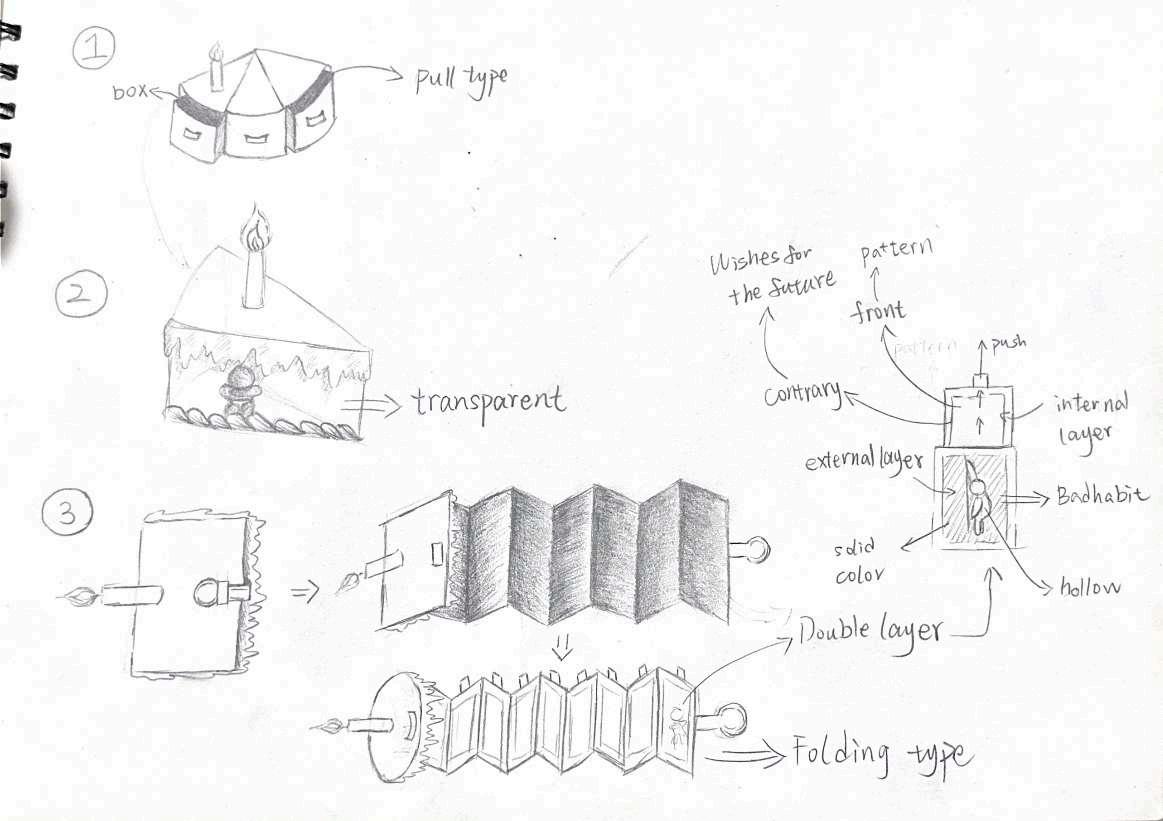 1
box
pull type
2
transparent
Wishes for
the future
pattern
front
pattern
push
contrary
internal
layer
external layer
Badhabit
solid
color
hollow
3
Double layer
Folding type